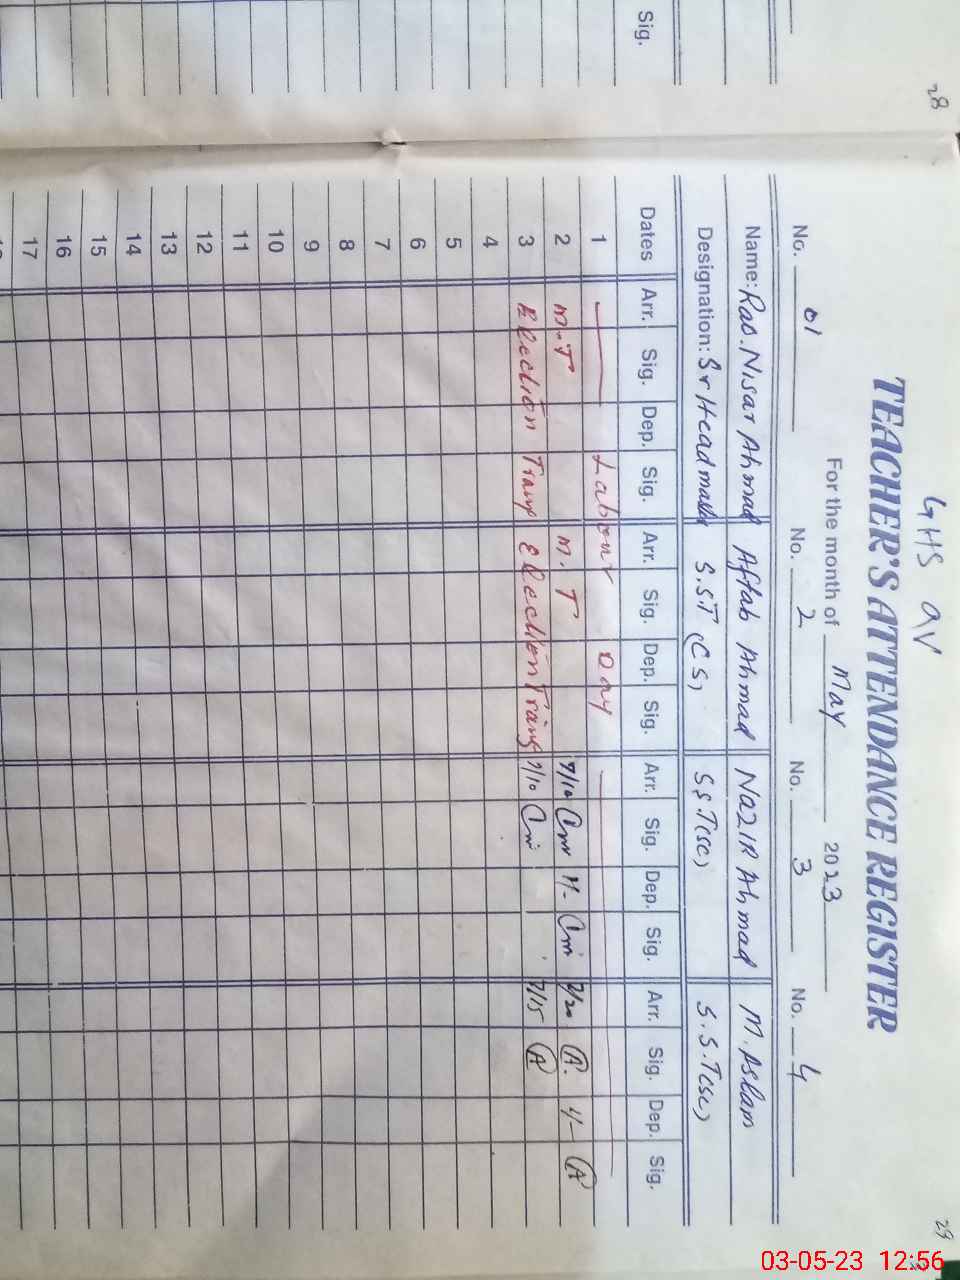 28
Sig.
29
GHS 9V
TEACHER'S ATTENDANCE REGISTER
For the month of May 2023
No. 01 No. 2 No. 3 No. 4
Name: Rao. Nisar Ahmad Aftab Ahmad NaZIR Ahmad M. Aslam
Designation: Sr Headmaster S.ST (CS) S.S.T(sc) S.S.T(sc)
Dates Arr. Sig. Dep. Sig. Arr. Sig. Dep. Sig. Arr. Sig. Dep. Sig. Arr. Sig. Dep. Sig.
1 Labour Day
2 M.T M.T 7/10 1/- 7/20 A 1/- A
3 Election Traing Election Traing 7/10 7/15 A
4
5
6
7
8
9
10
11
12
13
14
15
16
17
03-05-23 12:56